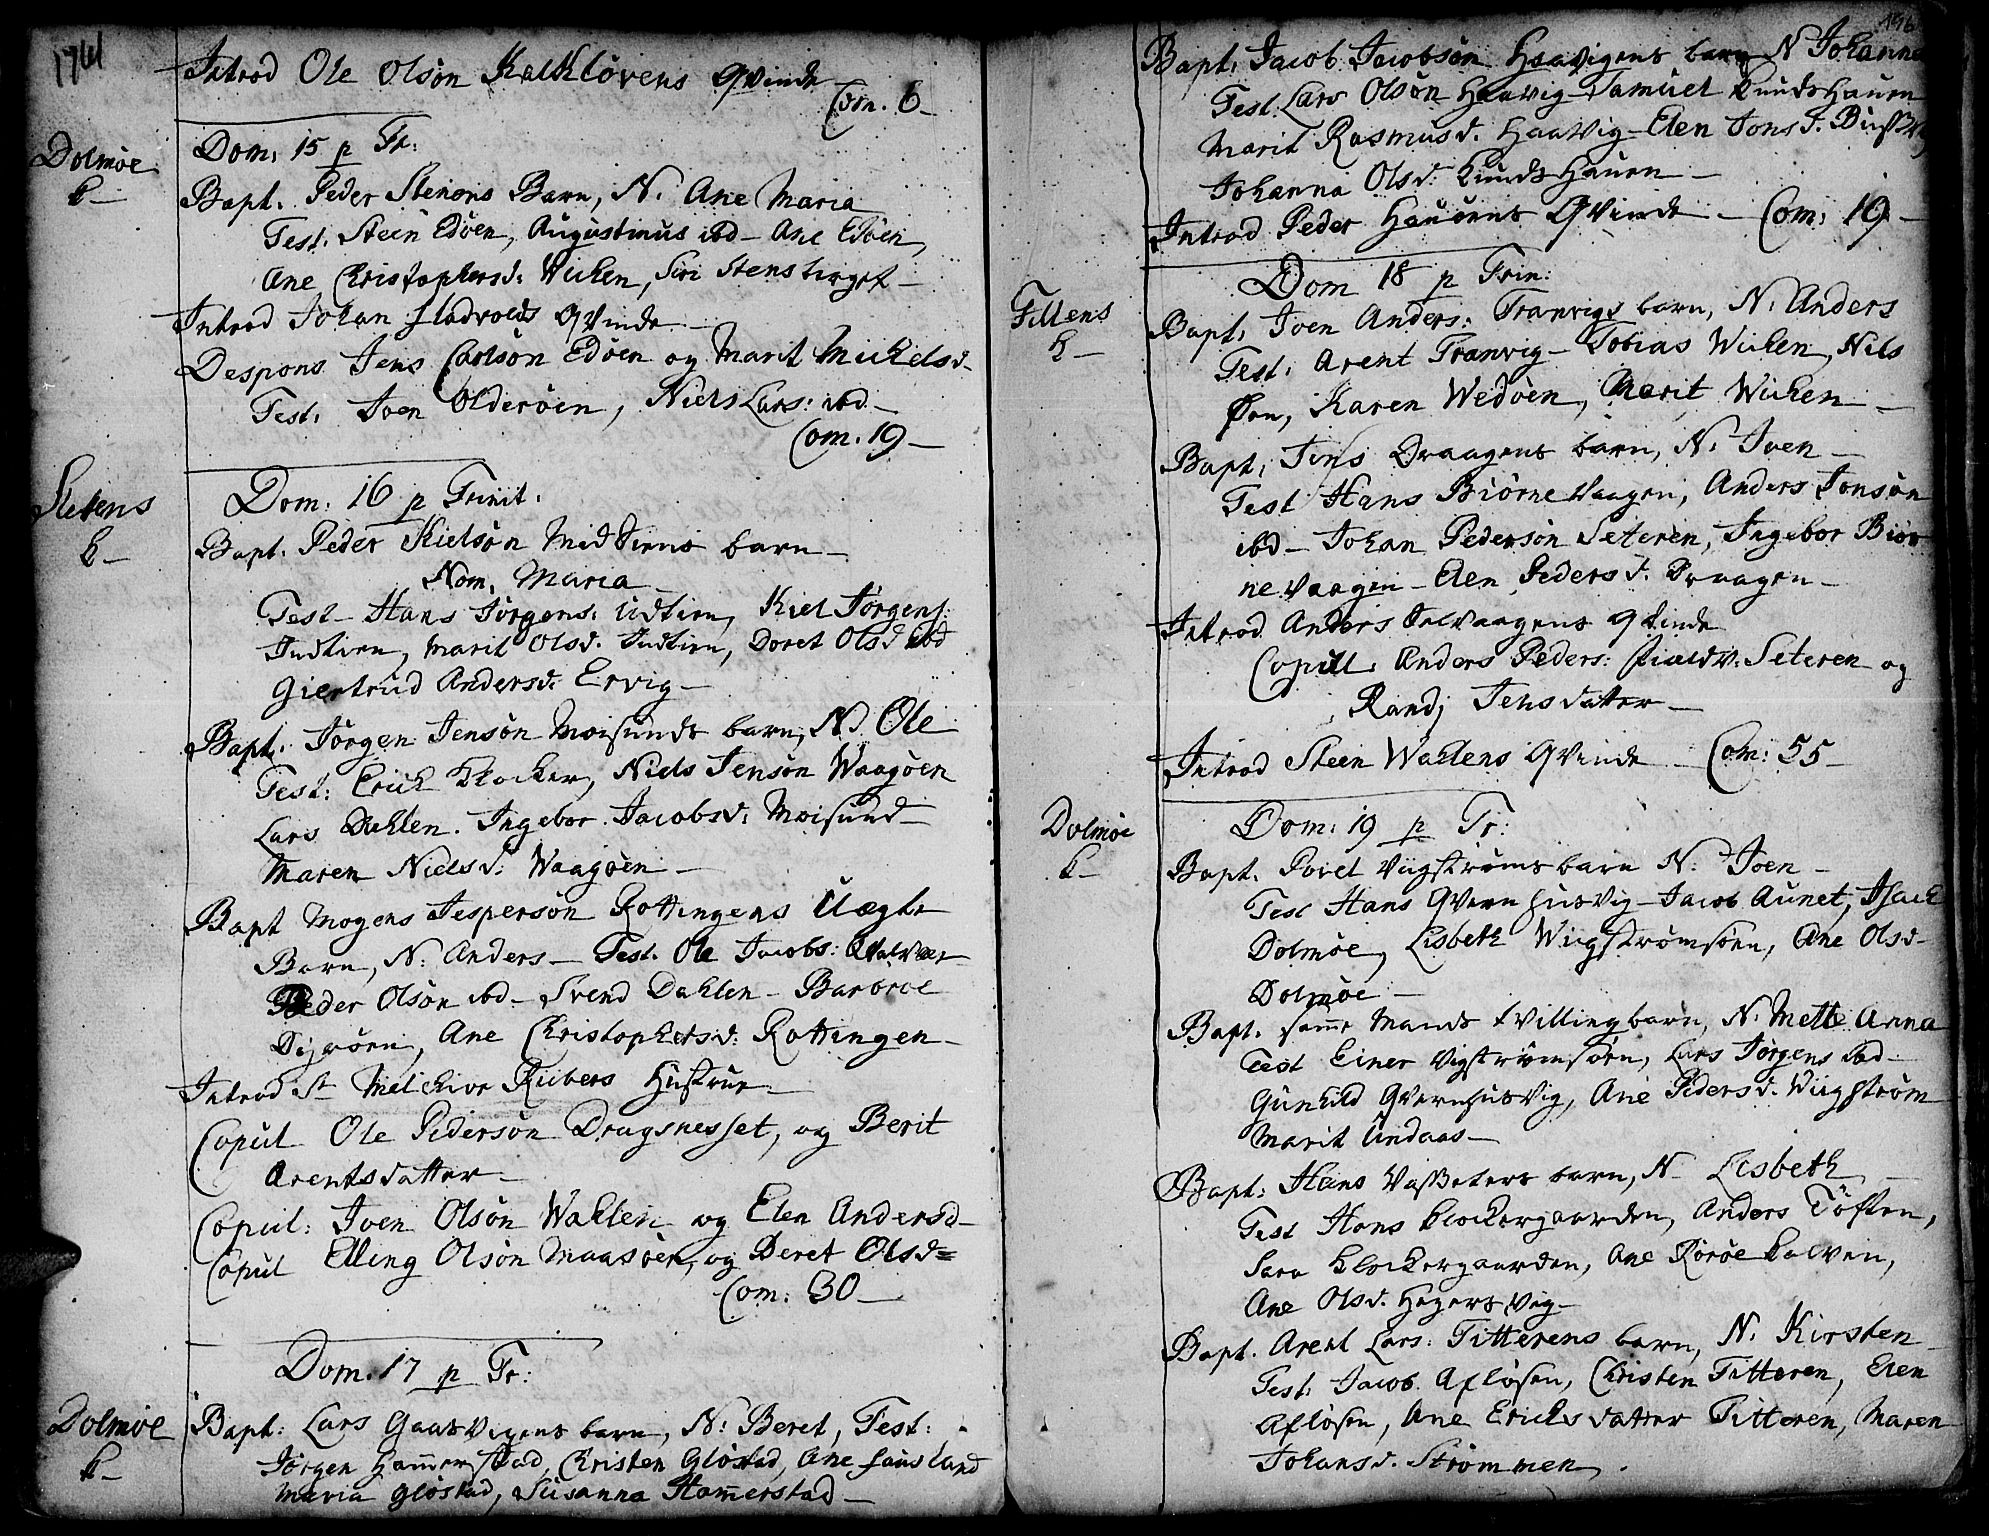 1761
Introd Ole Olsøn Kalkløvens Qvinde
Com. 6
Dolmøe
k
Dom: 15 p Tr:
Bapt. Peder Stenøens Barn, N. Ane Maria
Test. Steen Edøen, Augustinus ibd - Ane Edøen,
Ane Christophersd: Wichen, Siri Stensberget
Introd Johan Hladvolds Qvinde
Despons Jens Carlsøn Edøen og Marit Michelsd
Test. Joen Olderøen, Niels Lars: ibd
Com. 19
Sletens
k
Dom: 16 p Trinit.
Bapt. Peder Kielsøn Midtiens barn
Nom. Maria
Test Hans Jørgens: Udtien, Kiel Jørgens
Indtien, Marit Olsd. Indtien, Doret Olsd ibd
Giertrud Andersd. Ervig
Bapt. Jørgen Jensøn Moisunds barn, N. Ole
Test: Erich Klocker, Niels Jensøn Waagøen
Lars Dahlen. Ingebor Jacobsd: Moisund
Maren Nielsd: Waagøen
Bapt Mogens Jespersøn Rottingens Uægte
Barn, N. Anders - Test. Ole Jacobs: Qvalvær
Peder Olsøn ibd - Svend Dahlen - Barbroe
Ane Christophersd: Rottingen
Introd Sr Melchior Rubers Hustrue
Copul Ole Pedersøn Dragsnesset, og Berit
Arentsdatter
Copul: Joen Olsøn Wahlen og Elen Andersd
Copul Elling Olsøn Maasøen, og Beret Olsd
Com: 30
Dom. 17 p Tr:
Dolmøe
k
Bapt: Lars Gaasvigens barn, N. Beret, Test:
Jørgen Hammerstad, Christen Gløstad, Ane Hausland
Maria Gløstad, Susanna Hammerstad
Bapt. Jacob Jacobsøn Haavigens barn N Johanna
Test. Lars Olsøn Haavig Samuel Knudshauen
Marit Rasmusd. Haavig - Elen Jonsd.
Johanna Olsd. Knudshauen
Introd Peder Hauøens Qvinde - Com: 19
Fillens
k
Dom 18 p Trin:
Bapt. Joen Anders: Tranvigs barn, N. Anders
Test. Arent Tranvig - Tobias Wichen, Nils
Øen, Karen Wedøen, Marit Wichen
Bapt. Jens Draagens barn, N. Joen
Test Hans Biørnevaagen, Anders Jonsøn
ibd - Johan Pedersøn Seteren, Ingebor Biør
nevaagen - Elen Pedersd. Draagen
Introd Anders Kalvaagens Qvinde
Copull. Anders Peders: Seteren og
Randj Jensdatter
Introd Steen Wahlens Qvinde - Com: 55
Dolmøe
k
Dom: 19 p Tr:
Bapt. Povel Viigstrøms barn N. Joen
Test Hans Qvernhusvig - Jacob Aunet, Isach
Dolmøe, Lisbeth Wiigstrømsøen, Ane Olsd
Dolmøe
Bapt. samme Mands tvilling barn, N. Mette Anna
Test Einer Vigstrømsøen, Lars Jørgens ibd
Gunild Qvernhusvig, Ane Pedersd. Wiigstrøm
Marit Undaas
Bapt: Hans Vasseters barn, N. Lisbeth
Test Hans Klockergaarden, Anders Tøften,
Sara Klockergaarden, Ane Rørøe kalven,
Ane Olsd. Hegersvig
Bapt. Arent Lars: Titterens barn, N. Kirsten
Test. Jacob Afløsen, Christen Titteren, Elen
Afløsen, Ane Ericksdatter Titteren, Maren
Johansd. Strømmen.